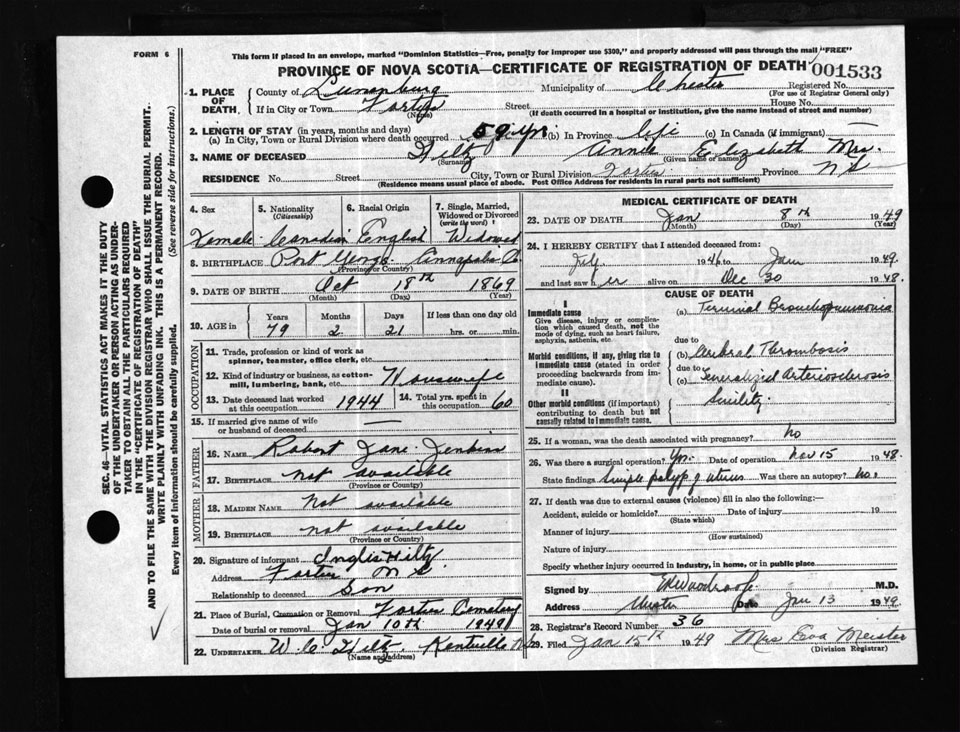 FORM 6
This form if placed in an envelope, marked "Dominion Statistics—Free, penalty for improper use $300," and properly addressed will pass through the mail "FREE"
PROVINCE OF NOVA SCOTIA—CERTIFICATE OF REGISTRATION OF DEATH
001533
1. PLACE OF DEATH County of Lunenburg Municipality of Chester Registered No.
(For use of Registrar General only)
If in City or Town Street House No.
(Name) (If death occurred in a hospital or institution, give the name instead of street and number)
2. LENGTH OF STAY (in years, months and days)
(a) In City, Town or Rural Division where death occurred 59 yrs (b) In Province Life (c) In Canada (if immigrant) —
3. NAME OF DECEASED Hiltz Annie Elizabeth Mrs.
(Surname) (Given name or names)
RESIDENCE No. Street City, Town or Rural Division Province N S
(Residence means usual place of abode. Post Office Address for residents in rural parts not sufficient)
4. Sex 5. Nationality (Citizenship) 6. Racial Origin 7. Single, Married, Widowed or Divorced (write the word)
Female Canadian English Widowed
8. BIRTHPLACE Port George Annapolis Co.
(Province or Country)
9. DATE OF BIRTH Oct 18th 1869
(Month) (Day) (Year)
10. AGE in Years Months Days If less than one day old
79 2 21 hrs. or min.
OCCUPATION
11. Trade, profession or kind of work as spinner, teamster, office clerk, etc.
12. Kind of industry or business, as cotton-mill, lumbering, bank, etc. Housewife
13. Date deceased last worked at this occupation 1944 14. Total yrs. spent in this occupation 60
15. If married give name of wife or husband of deceased —
FATHER
16. NAME Robert Zane Jenkins
17. BIRTHPLACE not available
(Province or Country)
MOTHER
18. MAIDEN NAME Not available
19. BIRTHPLACE not available
(Province or Country)
20. Signature of informant Inglis Hiltz
Address N S.
Relationship to deceased Son
21. Place of Burial, Cremation or Removal Cemetery
Date of burial or removal Jan 10th 1949
22. UNDERTAKER W. C. Hiltz Kentville NS
(Name and address)
MEDICAL CERTIFICATE OF DEATH
23. DATE OF DEATH Jan 8th 1949
(Month) (Day) (Year)
24. I HEREBY CERTIFY that I attended deceased from
1946 to Jan 1949.
and last saw her alive on Dec 30 1948.
CAUSE OF DEATH
I
Immediate cause
Give disease, injury or complication which caused death, not the mode of dying, such as heart failure, asphyxia, asthenia, etc.
(a) Terminal Bronchopneumonia
due to
Morbid conditions, if any, giving rise to immediate cause (stated in order proceeding backwards from immediate cause).
(b) Cerebral Thrombosis
due to
(c) Generalized Arteriosclerosis
II
Other morbid conditions (if important) contributing to death but not causally related to immediate cause.
Senility
25. If a woman, was the death associated with pregnancy? No
26. Was there a surgical operation? Yes. Date of operation Nov 15 1948.
State findings Simple polyp of uterus Was there an autopsy? No.
27. If death was due to external causes (violence) fill in also the following:—
Accident, suicide or homicide? Date of injury 19
(State which)
Manner of injury
(How sustained)
Nature of injury
Specify whether injury occurred in Industry, in home, or in public place
Signed by M.D.
Address Chester Date Jan 13 1949
28. Registrar's Record Number 36
29. Filed Jan 15th 1949 Mrs Eva Meister
(Division Registrar)
SEC. 46—VITAL STATISTICS ACT MAKES IT THE DUTY
OF THE UNDERTAKER OR PERSON ACTING AS UNDER-
TAKER TO OBTAIN ALL THE PARTICULARS REQUIRED
IN THE "CERTIFICATE OF REGISTRATION OF DEATH"
AND TO FILE THE SAME WITH THE DIVISION REGISTRAR WHO SHALL ISSUE THE BURIAL PERMIT.
WRITE PLAINLY WITH UNFADING INK. THIS IS A PERMANENT RECORD.
Every item of information should be carefully supplied. (See reverse side for instructions.)